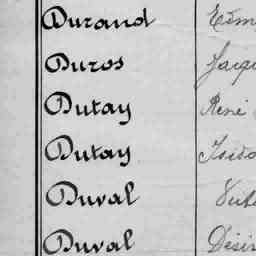 Durand Edm
Duros Jacqu
Dutay René
Dutay Isido
Duval Victo
Duval Désir